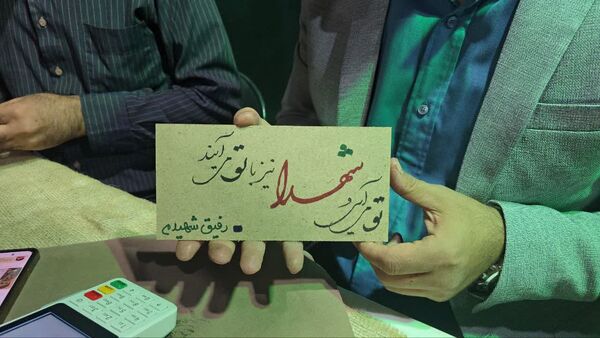 تو می‌آیی و
شهدا
نیز با تو می‌آیند
رفیق شهیدم